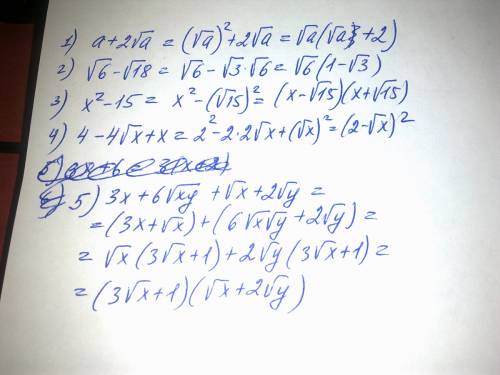 1) a+2√a = (√a)²+2√a = √a(√a+2)
2) √6-√18 = √6-√3·√6 = √6(1-√3)
3) x²-15 = x²-(√15)² = (x-√15)(x+√15)
4) 4-4√x+x = 2²-2·2√x+(√x)² = (2-√x)²
5) 3x+6√xy+√x+2√y =
= (3x+√x)+(6√x√y+2√y) =
= √x(3√x+1)+2√y(3√x+1) =
= (3√x+1)(√x+2√y)